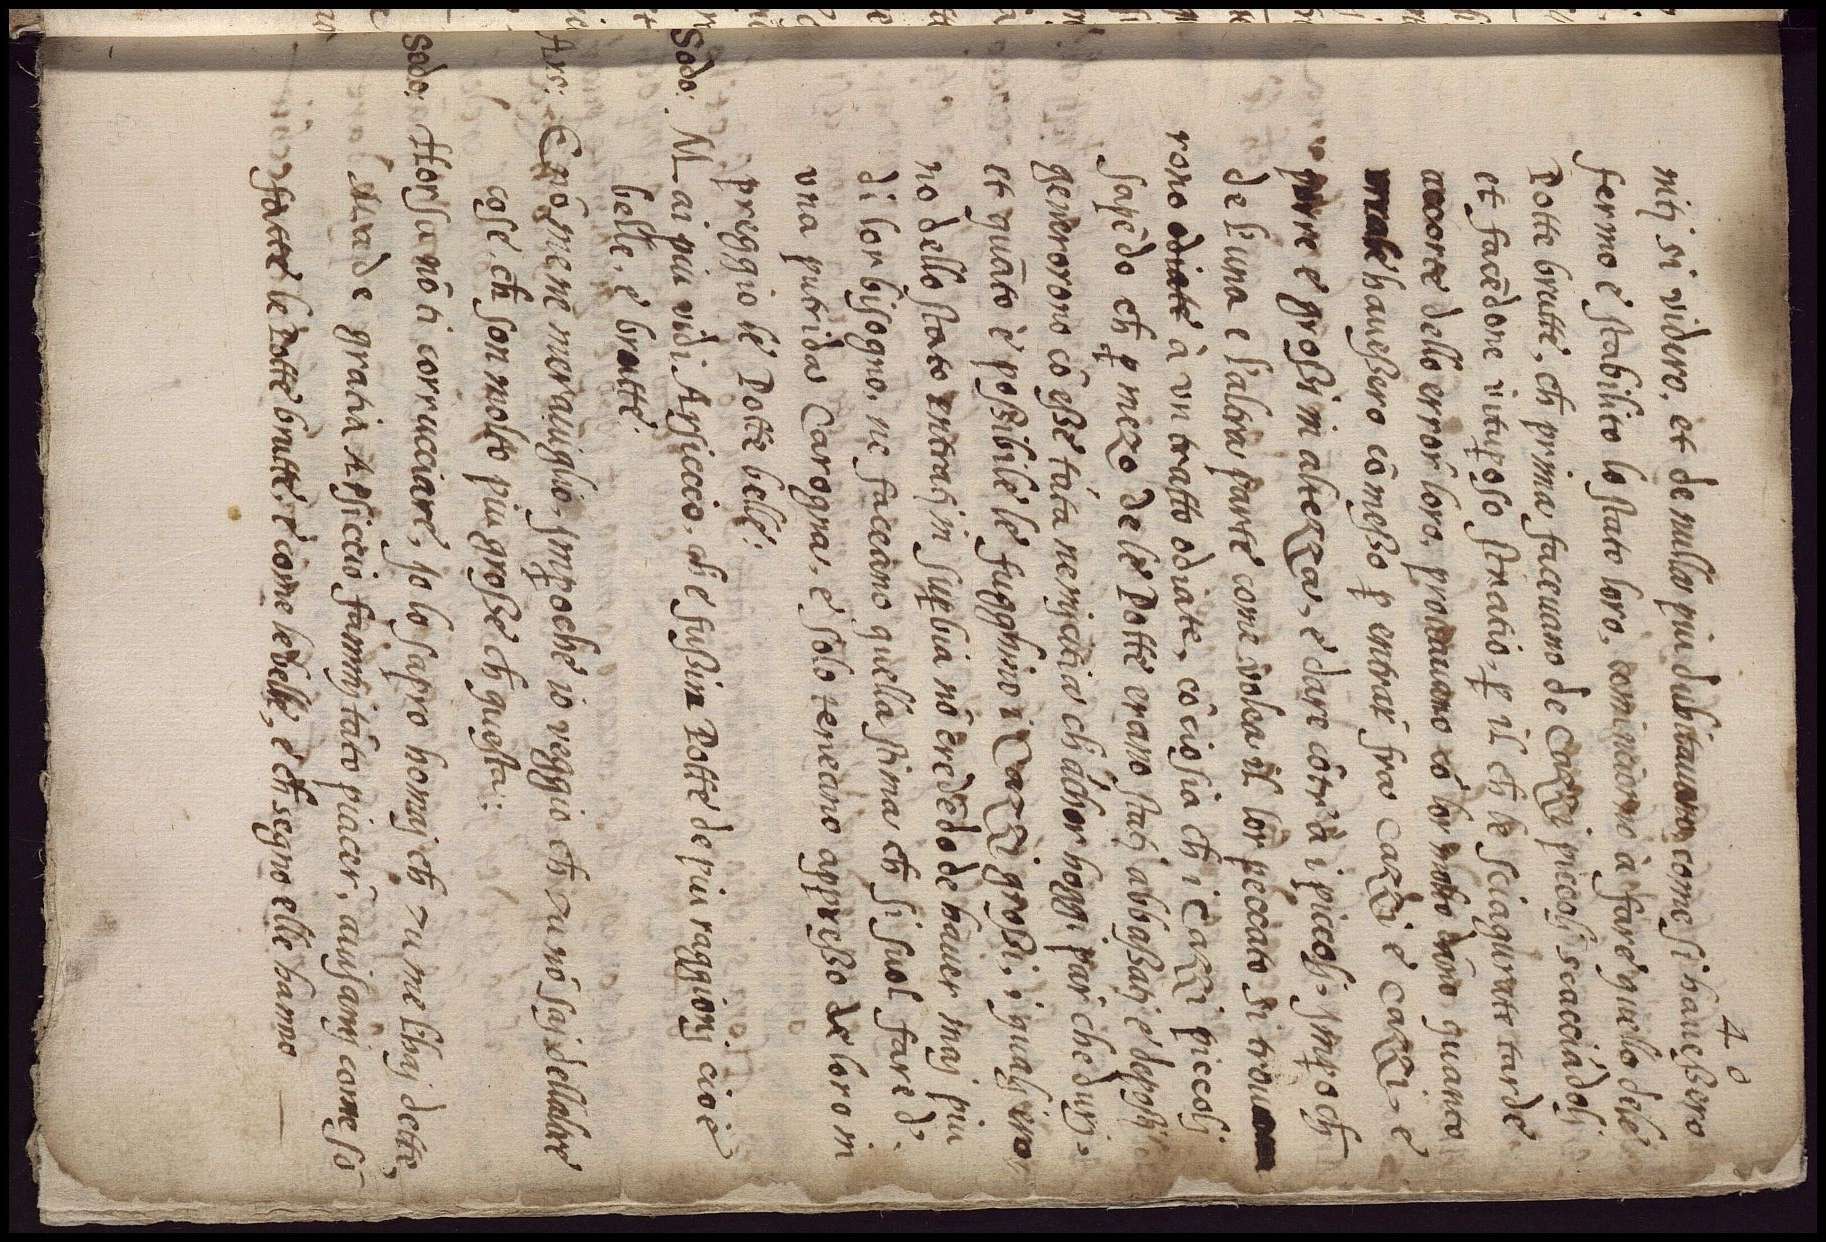 40
mitj si videro, et de nulla piu dubitauano, come si haueßero
fermo e stabilito lo stato loro, cominciorno à fare quello dele
Potte brutte, ch prima faceuano de Cazzi piccoli scacciãdoli
et facẽdone vitup̱oso stratio, p̱ il ch le sciagurate tarde
accorte dello error loro, prouauano cõ lor molto dãno quanto
male haueßero cõmeßo p̱ entrar fra Cazzi e Cazzi, e
porre é großi in altezza, e dare cõtr'à i piccoli. Imp̱o ch
de l'una e l'altra parte come volea il lor peccato si trouo
rono odiate à un tratto odiate, cõciosia ch i Cazzi piccoli
sapẽdo ch p̱ mezo dele Potte erano stati abbaßati e depoßi
generorono cõ eße tãta nemicitia ch ãchor hoggi par che durj.
et quãto è poßibile le fugghino i Cazzi großi, i quali ero
no dello stato entrati in sup̱bia nõ credẽdo de hauer maj piu
di lor bisogno, ne faceano quella stima ch si suol fare d'
una putrida Carogna, e solo teneano appreßo de loro in
preggio le Potte belle.
Sodo. Mai piu vidi Arsiccio, ch'e fußin Potte de piu raggionj cioè
belle, e brutte.
Ars. E nõ me ne merauiglio, Imp̱oche io veggio ch tu nõ saj dell'altre
cose, ch son molto piu große ch questa.
Sodo. Horsu nõ ti corrucciare, io lo sapro homaj ch tu me l'haj dette,
Ma de gratia Arsiccio fammj tãto piacer, auisamj come so-
fatte le Potte brutte, e come le belle, e ch segno elle hanno